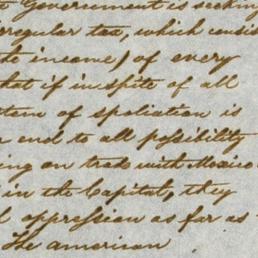 Government is seeking
regular tax, which consis
the income) of every
that if in spite of all
stem of spoliation is
n end to all possibility
ing on trade with Mexico
in the Capital, they
l oppression as far as
The american